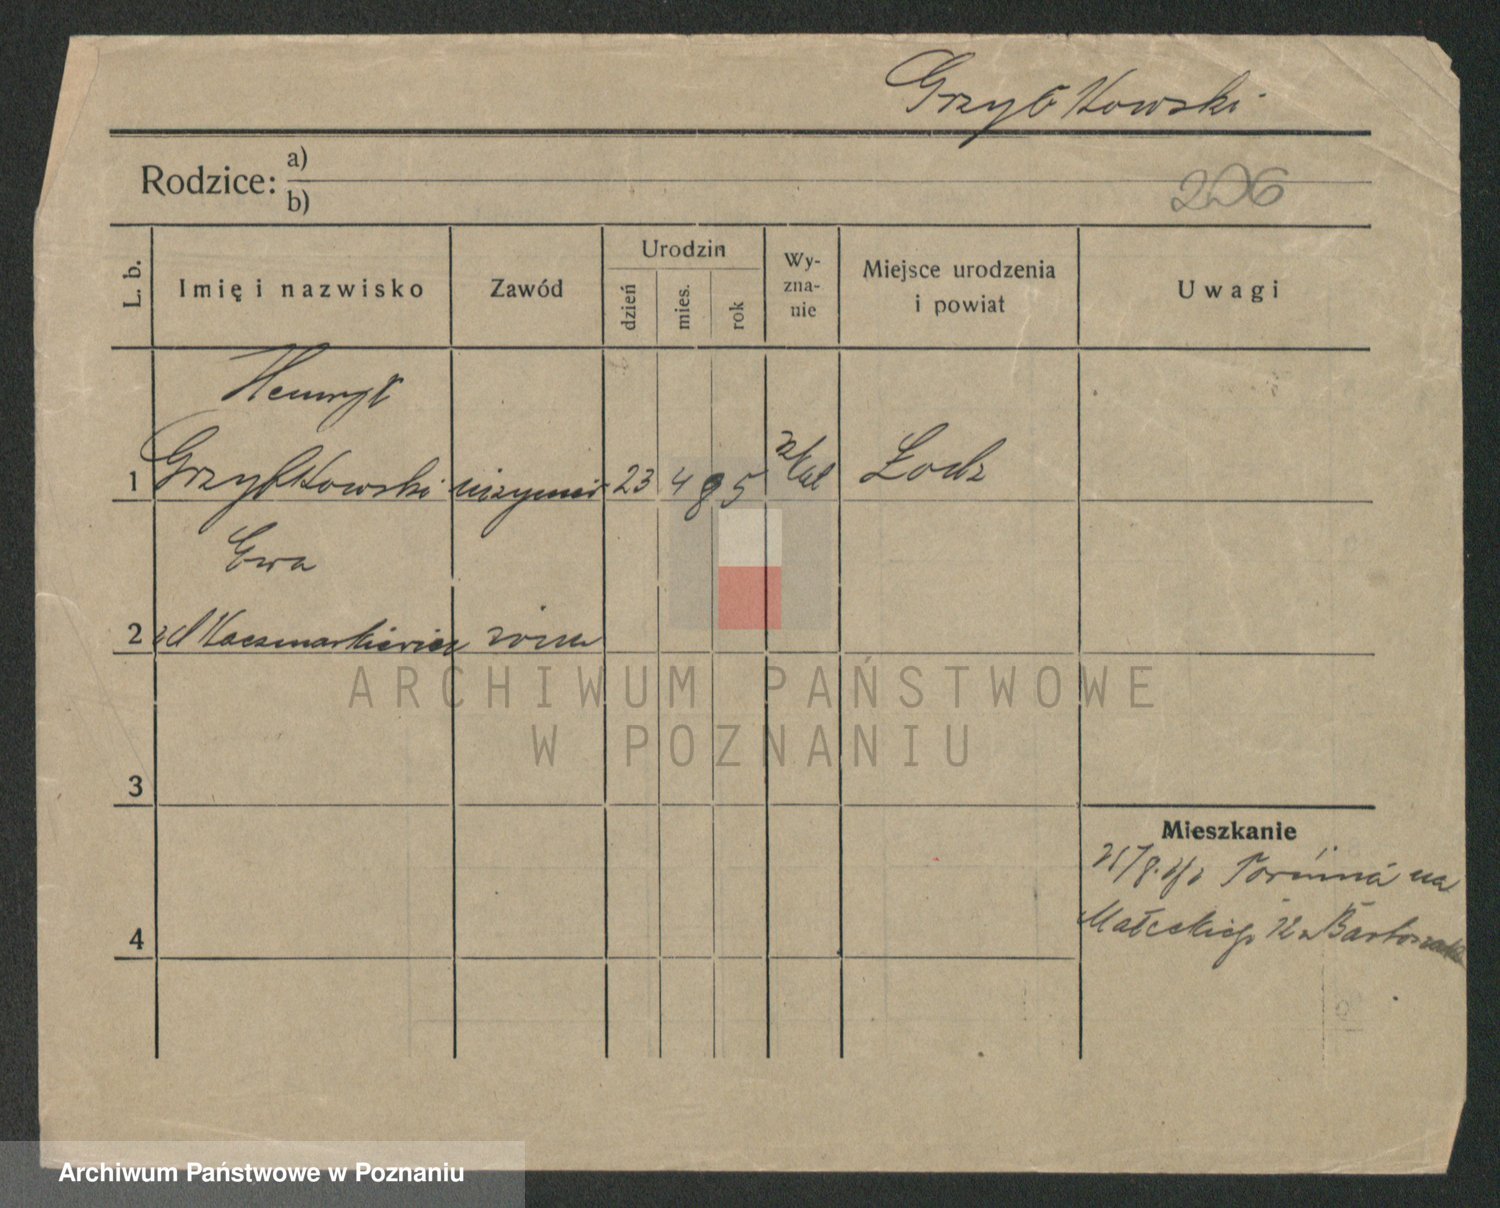 Grzybkowski
Rodzice: a)
b)
206
L. b.
Imię i nazwisko
Zawód
Urodzin
dzień
mies.
rok
Wy-
zna-
nie
Miejsce urodzenia
i powiat
Uwagi
Henryk
1 Grzybkowski inżynier 23 4 85 Łodz
Ewa
2 zd Kaczmarkiewicz żona
3
4
Mieszkanie
na
Małeckiego 12
ARCHIWUM PAŃSTWOWE
W POZNANIU
Archiwum Państwowe w Poznaniu